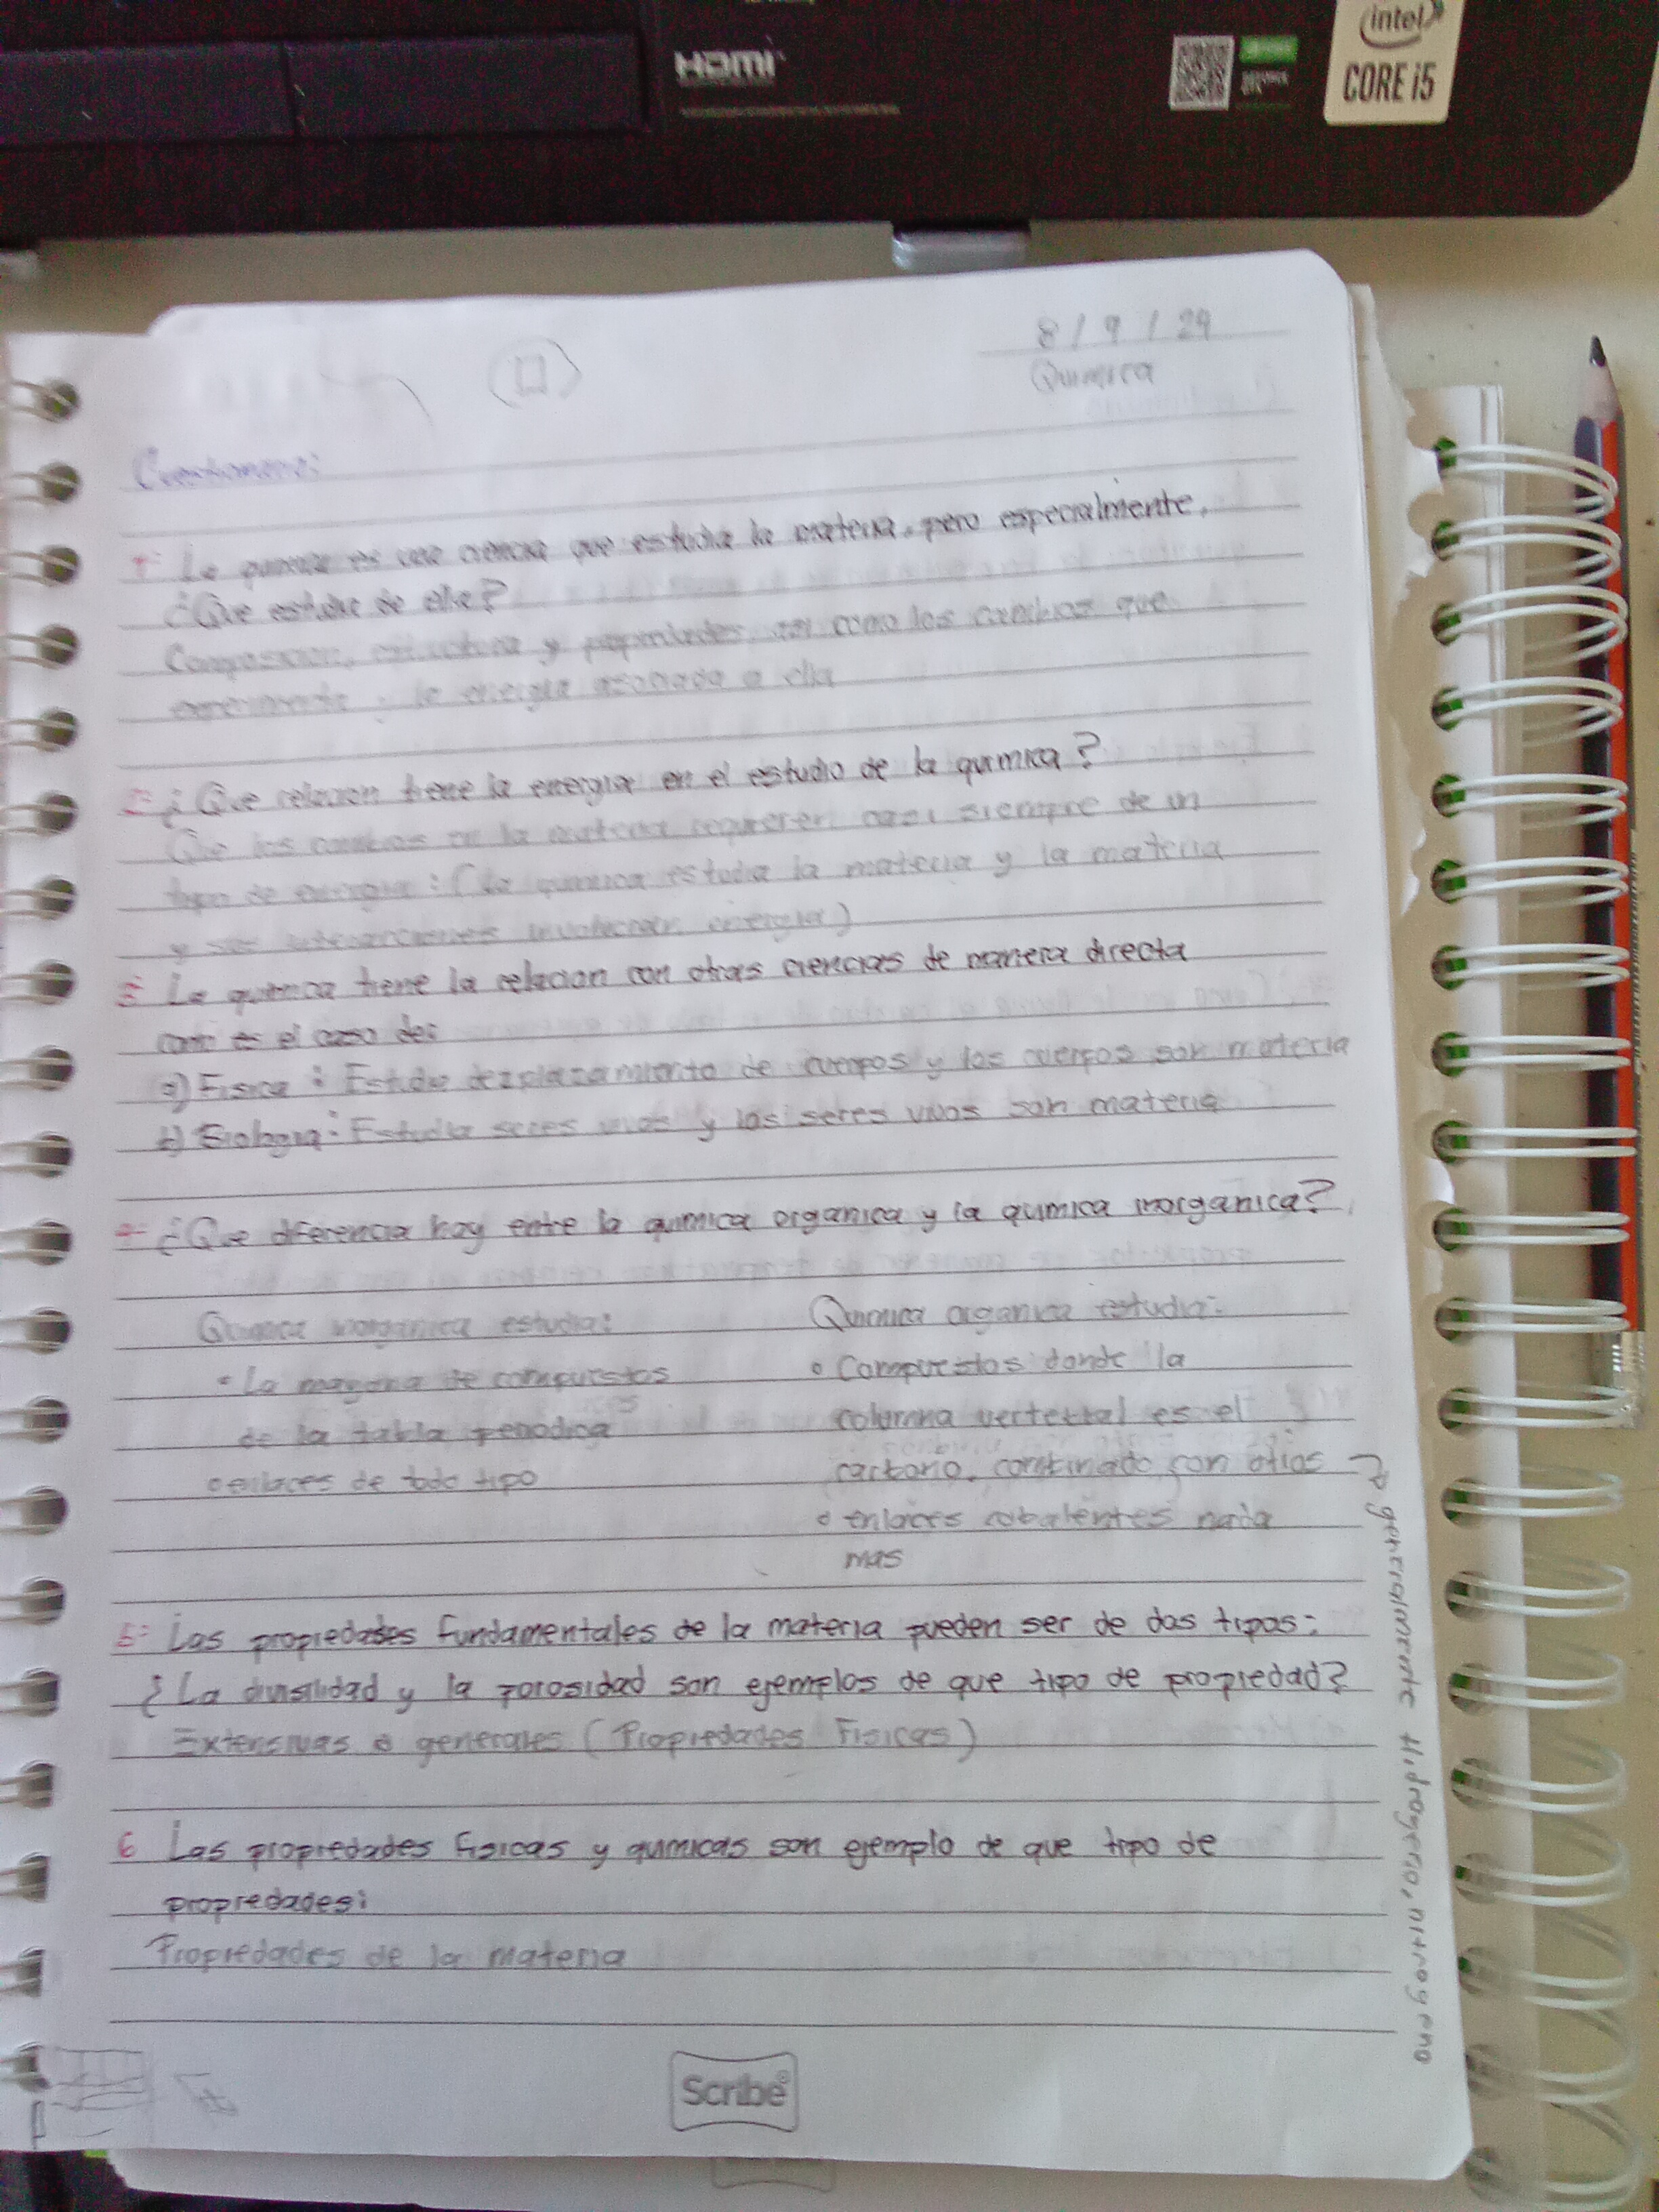 HDMI
intel
CORE i5
8 / 9 / 24
Quimica
Cuestionario:
1- La quimica es una ciencia que estudia la materia, pero especialmente,
¿Que estudia de ella?
Composicion, estructura y propiedades, asi como los cambios que
experimenta y la energia asociada a ella
2- ¿Que relacion tiene la energia en el estudio de la quimica?
Que los cambios en la materia requieren casi siempre de un
tipo de energia: (La quimica estudia la materia y la materia
y sus interacciones involucran energia)
3- La quimica tiene la relacion con otras ciencias de manera directa
como es el caso de:
a) Fisica: Estudia dezplazamiento de cuerpos y los cuerpos son materia
b) Biologia: Estudia seres vivos y los seres vivos son materia
4- ¿Que diferencia hay entre la quimica organica y la quimica inorganica?
Quimica inorganica estudia:
• La mayoria de compuestos
de la tabla periodica
• enlaces de todo tipo
Quimica organica estudia:
• Compuestos donde la
columna vertebral es el
carbono, combinado con otros
• enlaces cobalentes nada
mas
→ generalmente Hidrogeno, nitrogeno
5- Las propiedades fundamentales de la materia pueden ser de dos tipos:
¿La divisilidad y la porosidad son ejemplos de que tipo de propiedad?
Extensivas o generales (Propiedades Fisicas)
6 Las propiedades fisicas y quimicas son ejemplo de que tipo de
propiedades:
Propiedades de la materia
Scribe